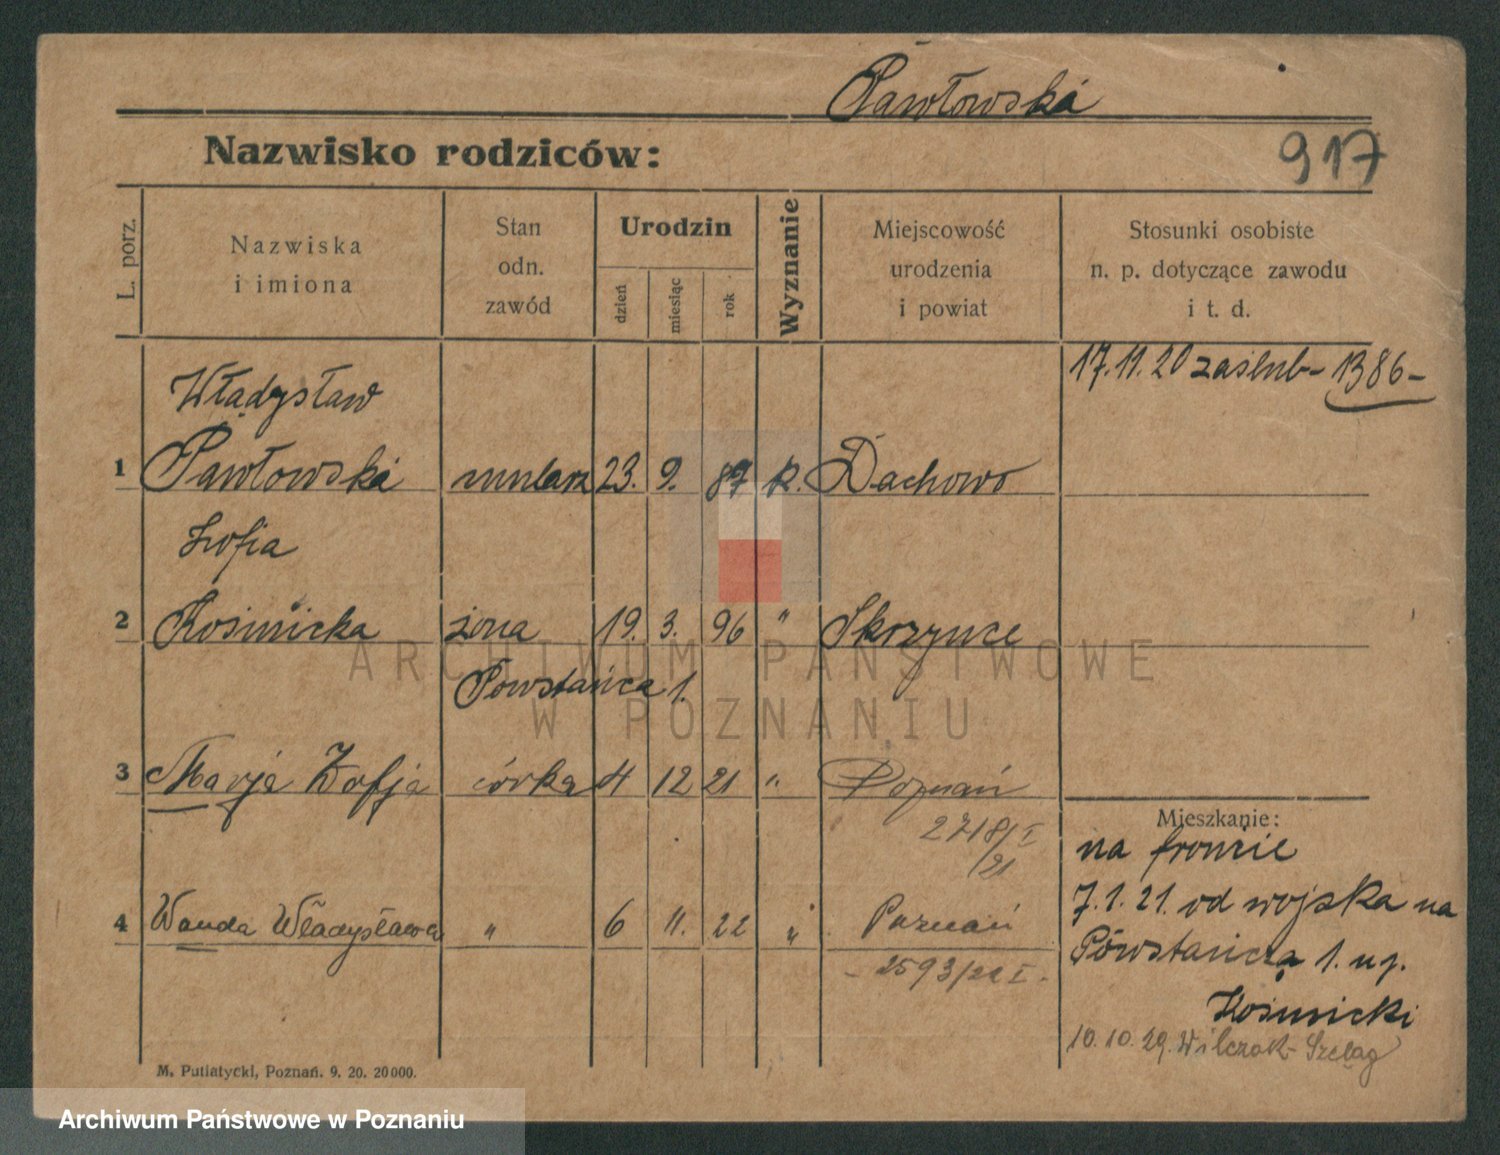 Pawłowska
Nazwisko rodziców:
917
L. porz.
Nazwiska
i imiona
Stan
odn.
zawód
Urodzin
dzień
miesiąc
rok
Wyznanie
Miejscowość
urodzenia
i powiat
Stosunki osobiste
n. p. dotyczące zawodu
i t. d.
17.11.20 zaślub- 1386-
Władysław
1 Pawłowska mularz 23. 9. 87 k. Dachowo
Zofia
2 Kośmicka żona 19. 3. 96 " Skrzynce
Powstańca 1.
3 Marja Zofja córka 4 12 21 " Poznań
2718/I
/21
4 Wanda Władysława " 6 11. 22 " Poznań
- 2593/22 I -
Mieszkanie:
na froncie
7.1.21. od wojska na
Powstańcza 1. u p.
Kośmicki
10.10.29. Wilczak-Szeląg
M. Putiatycki, Poznań. 9. 20. 20000.
ARCHIWUM PAŃSTWOWE
W POZNANIU
Archiwum Państwowe w Poznaniu